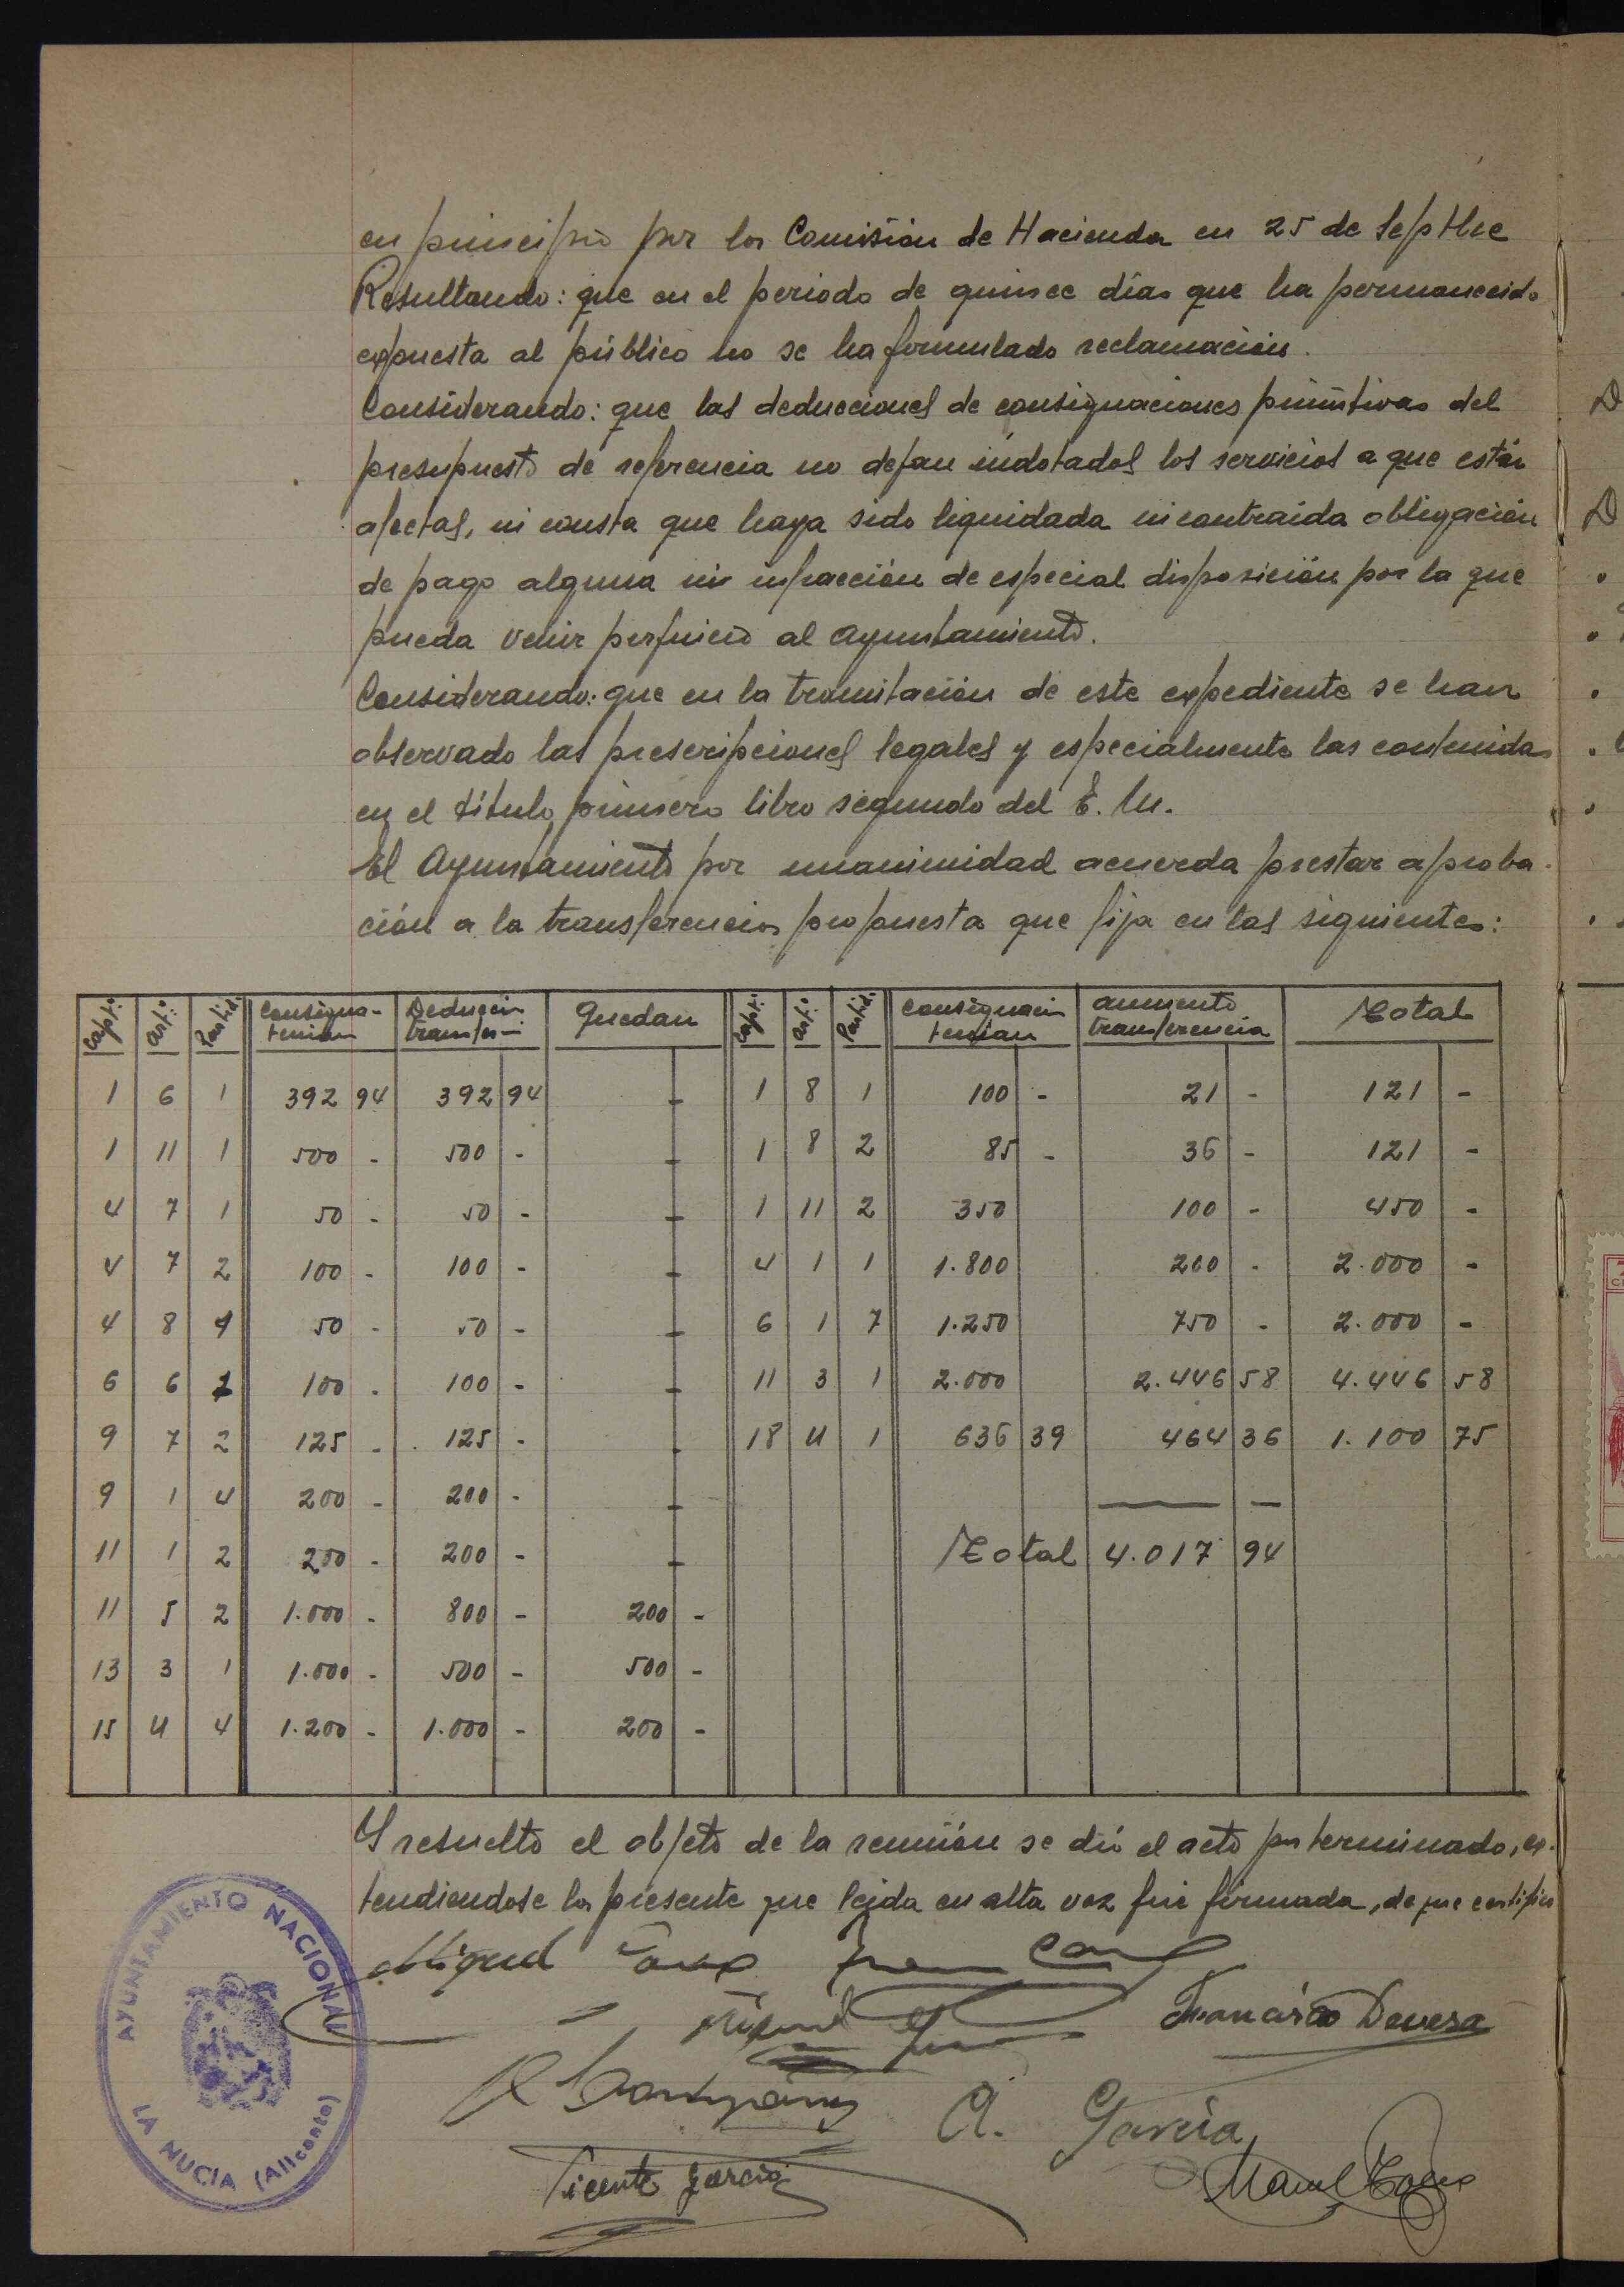 en principio por la Comisión de Hacienda en 25 de Septbre
Resultando: que en el periodo de quince días que ha permanecido
expuesta al público no se ha formulado reclamación.
Considerando: que las deducciones de consignaciones primitivas del
presupuesto de referencia no dejan indotados los servicios a que están
afectas, ni consta que haya sido liquidada ni contraida obligación
de pago alguna ni infracción de especial disposición por la que
pueda venir perjuicio al Ayuntamiento.
Considerando: que en la tramitación de este expediente se han
observado las prescripciones legales y especialmente las contenidas
en el título primero libro segundo del E. M.
El Ayuntamiento por unanimidad acuerda prestar aproba-
ción a la transferencia propuesta que fija en las siguientes:
Capt.º Art.º Partid. Consigna- tenian Deducción transfer- Quedan Capt.º Art.º Partid. Consignacin tenian aumento transferencia Total
1 6 1 392 94 392 94 - 1 8 1 100 - 21 - 121 -
1 11 1 500 - 500 - - 1 8 2 85 - 36 - 121 -
4 7 1 50 - 50 - - 1 11 2 350 100 - 450 -
4 7 2 100 - 100 - - 4 1 1 1.800 200 - 2.000 -
4 8 9 50 - 50 - - 6 1 7 1.250 750 - 2.000 -
6 6 1 100 - 100 - - 11 3 1 2.000 2.446 58 4.446 58
9 7 2 125 - 125 - - 18 U 1 636 39 464 36 1.100 75
9 1 4 200 - 200 - -
11 1 2 200 - 200 - - Total 4.017 94
11 5 2 1.000 - 800 - 200 -
13 3 1 1.000 - 500 - 500 -
15 U 4 1.200 - 1.000 - 200 -
Y resuelto el objeto de la reunión se dió el acto por terminado, ex-
tendiendose la presente que leida en alta voz fué firmada, de que certifico
AYUNTAMIENTO NACIONAL
LA NUCIA (Alicante)
Miguel
Miguel
Francisco Devesa
A. García
Vicente García
Manuel